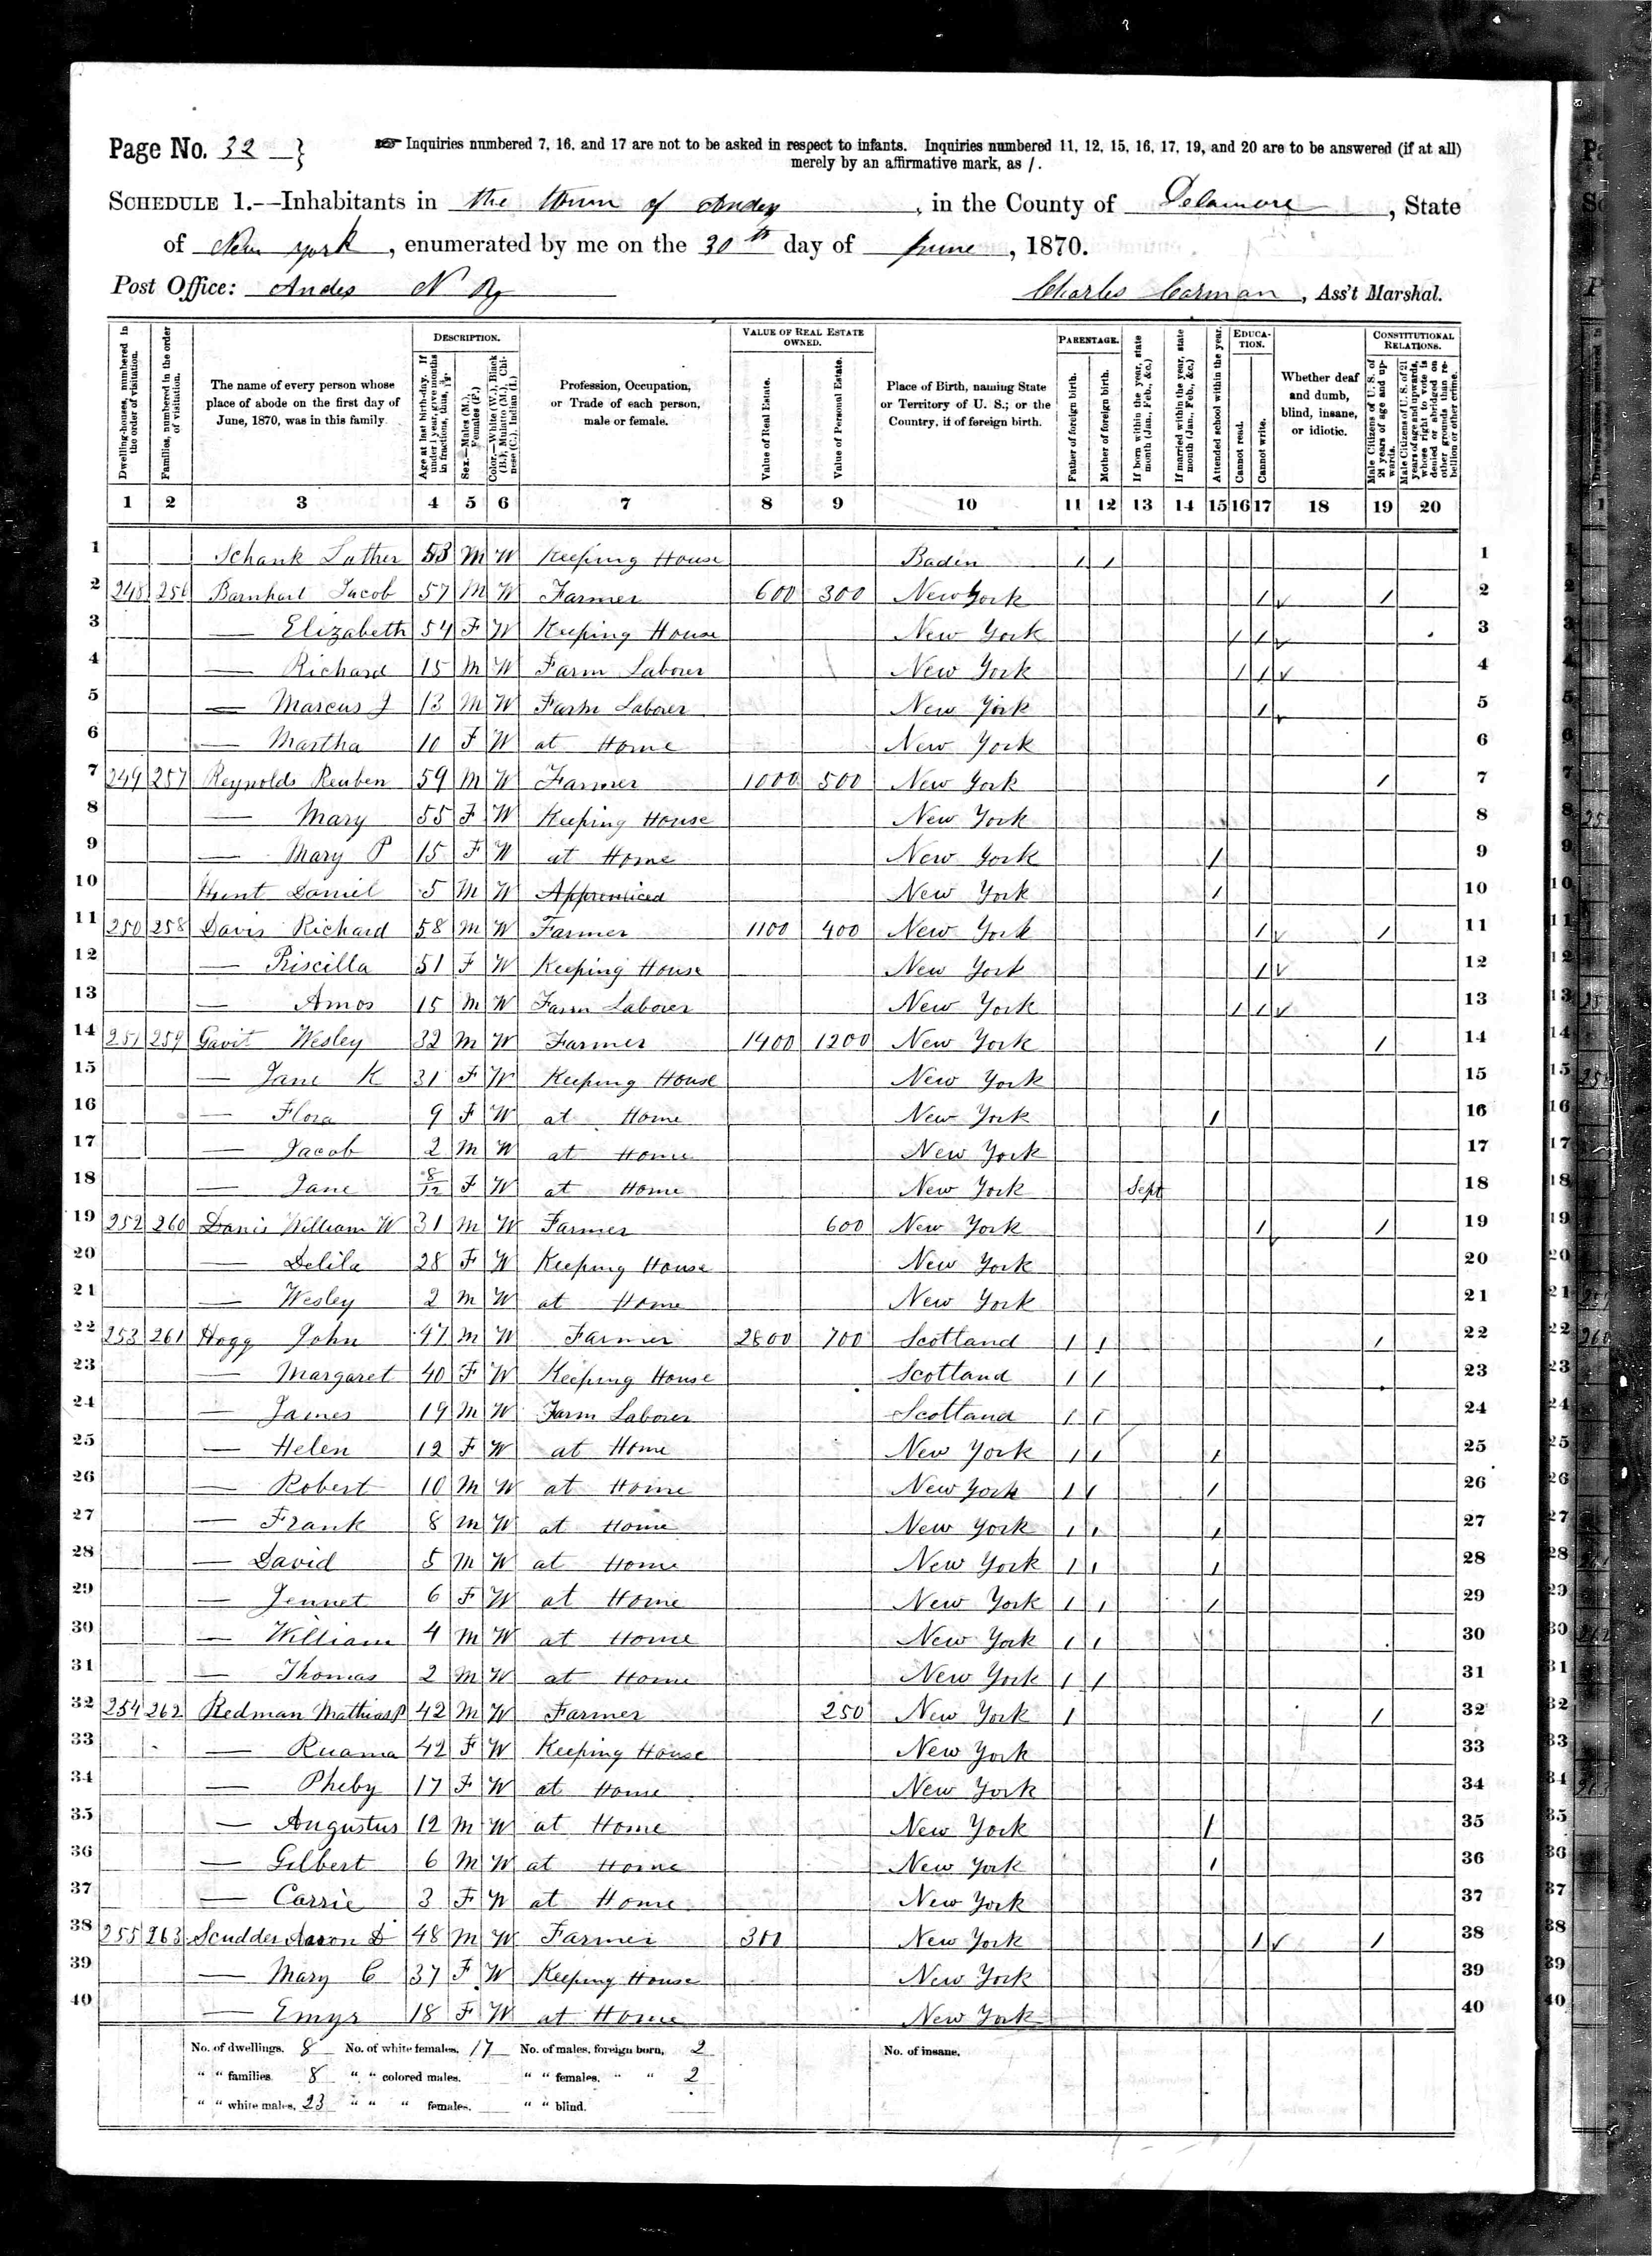 Page No. 32
Inquiries numbered 7, 16, and 17 are not to be asked in respect to infants. Inquiries numbered 11, 12, 15, 16, 17, 19, and 20 are to be answered (if at all)
merely by an affirmative mark, as /.
SCHEDULE 1.—Inhabitants in the town of Andes, in the County of Delaware, State
of New York, enumerated by me on the 30th day of June, 1870.
Post Office: Andes N Y
Charles Carman, Ass't Marshal.
Dwelling-houses, numbered in the order of visitation.
Families, numbered in the order of visitation.
The name of every person whose place of abode on the first day of June, 1870, was in this family.
DESCRIPTION.
Age at last birth-day. If under 1 year, give months in fractions, thus, 3/12
Sex.—Males (M.), Females (F.)
Color.—White (W.), Black (B.), Mulatto (M.), Chinese (C.), Indian (I.)
Profession, Occupation, or Trade of each person, male or female.
VALUE OF REAL ESTATE OWNED.
Value of Real Estate.
Value of Personal Estate.
Place of Birth, naming State or Territory of U. S.; or the Country, if of foreign birth.
PARENTAGE.
Father of foreign birth.
Mother of foreign birth.
If born within the year, state month (Jan., Feb., &c.)
If married within the year, state month (Jan., Feb., &c.)
Attended school within the year.
EDUCATION.
Cannot read.
Cannot write.
Whether deaf and dumb, blind, insane, or idiotic.
CONSTITUTIONAL RELATIONS.
Male Citizens of U. S. of 21 years of age and upwards.
Male Citizens of U. S. of 21 years of age and upwards, whose right to vote is denied or abridged on other grounds than rebellion or other crime.
1 2 3 4 5 6 7 8 9 10 11 12 13 14 15 16 17 18 19 20
1 Schank Luther M W Keeping House Baden / / 1
2 248 256 Barnhart Jacob 57 M W Farmer 600 300 New York / / 2
3 — Elizabeth 54 F W Keeping House New York / / 3
4 — Richard 15 M W Farm Laborer New York / / 4
5 — Marcus J 13 M W Farm Laborer New York / 5
6 — Martha 10 F W at Home New York 6
7 249 257 Reynolds Reuben 59 M W Farmer 1000 500 New York / 7
8 — Mary 55 F W Keeping House New York 8
9 — Mary P 15 F W at Home New York / 9
10 Hunt Daniel 5 M W Apprenticed New York / 10
11 250 258 Davis Richard 58 M W Farmer 1100 400 New York / / 11
12 — Priscilla 51 F W Keeping House New York / 12
13 — Amos 15 M W Farm Laborer New York / / 13
14 251 259 Gavit Wesley 32 M W Farmer 1400 1200 New York / 14
15 — Jane K 31 F W Keeping House New York 15
16 — Flora 9 F W at Home New York / 16
17 — Jacob 2 M W at Home New York 17
18 — Jane 8/12 F W at Home New York Sept 18
19 252 260 Davis William W 31 M W Farmer 600 New York / / 19
20 — Delila 28 F W Keeping House New York 20
21 — Wesley 2 M W at Home New York 21
22 253 261 Hogg John 47 M W Farmer 2800 700 Scotland / / / 22
23 — Margaret 40 F W Keeping House Scotland / / 23
24 — James 19 M W Farm Laborer Scotland / / 24
25 — Helen 12 F W at Home New York / / / 25
26 — Robert 10 M W at Home New York / / / 26
27 — Frank 8 M W at Home New York / / / 27
28 — David 5 M W at Home New York / / / 28
29 — Jennet 6 F W at Home New York / / / 29
30 — William 4 M W at Home New York / / 30
31 — Thomas 2 M W at Home New York / / 31
32 254 262 Redman Mathias P 42 M W Farmer 250 New York / / 32
33 — Ruama 42 F W Keeping House New York 33
34 — Pheby 17 F W at Home New York 34
35 — Augustus 12 M W at Home New York / 35
36 — Gilbert 6 M W at Home New York / 36
37 — Carrie 3 F W at Home New York 37
38 255 263 Scudder Aaron D 48 M W Farmer 300 New York / / 38
39 — Mary C 37 F W Keeping House New York 39
40 — Emyr 18 F W at Home New York 40
No. of dwellings, 8 No. of white females, 17 No. of males, foreign born, 2 No. of insane,
" " families, 8 " " colored males, " " females, " " 2
" " white males, 23 " " " females, " " blind,